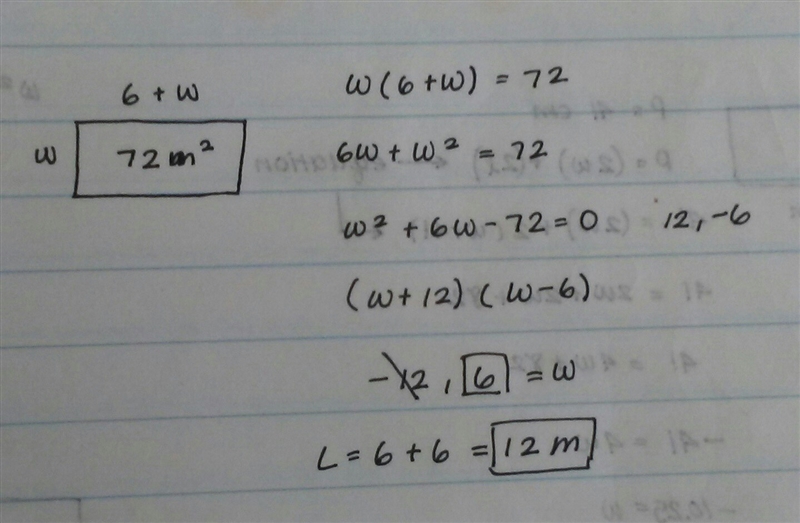 6 + w
w
72 m²
w(6+w) = 72
6w + w² = 72
w² + 6w - 72 = 0 12, -6
(w+12)(w-6)
-12, 6 = w
L = 6 + 6 = 12 m